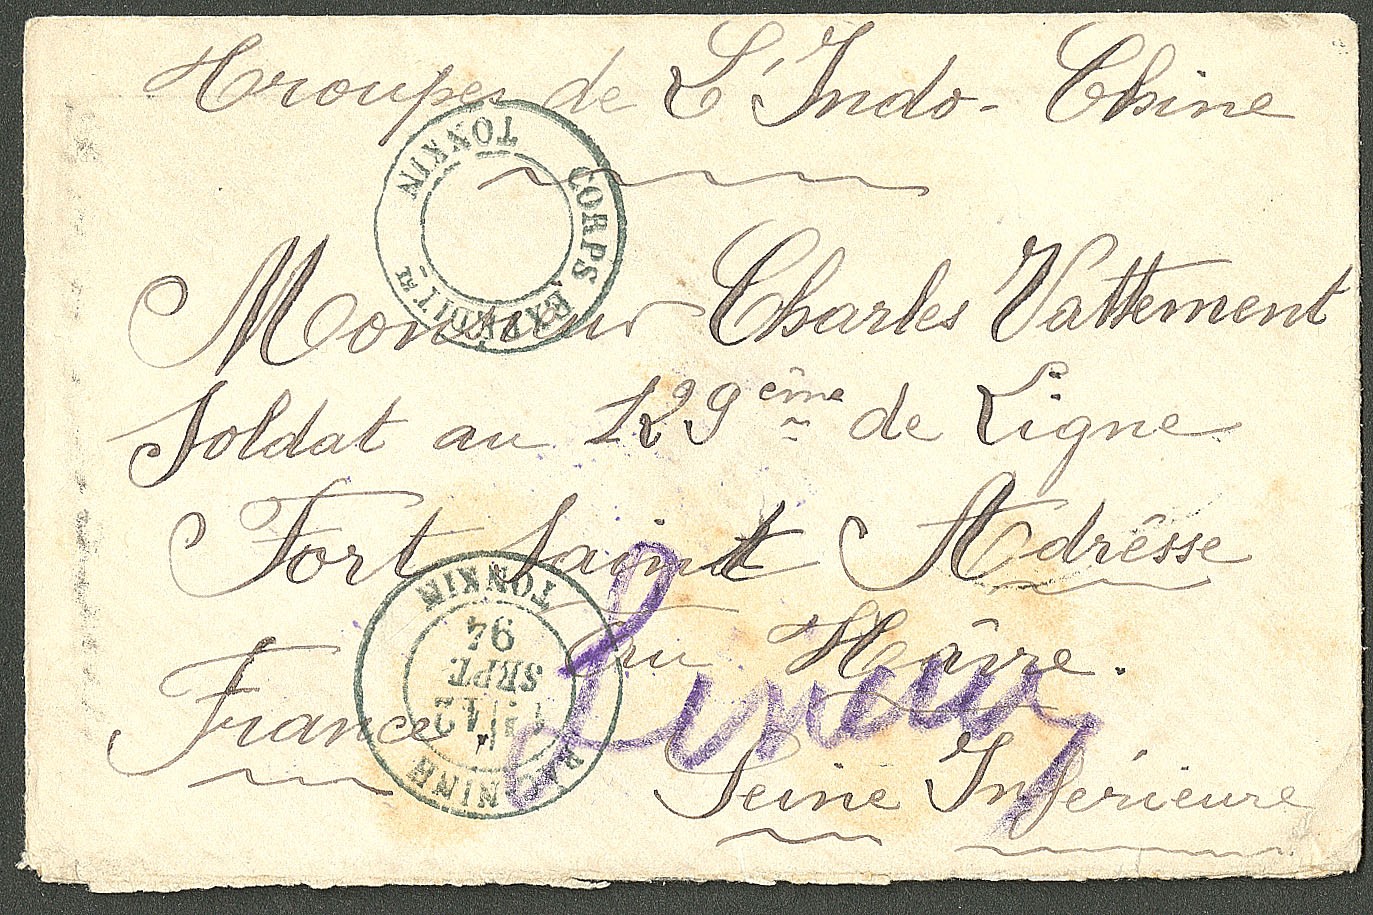 Troupes de L'Indo-Chine
CORPS EXPÉDITRE
TONKIN
Monsieur Charles Vattement
Soldat au 129ème de Ligne
Fort Saint Adrêsse
au Hâvre.
France
Seine Inférieure
TONKIN
SEPT.
94
BAC-NINH